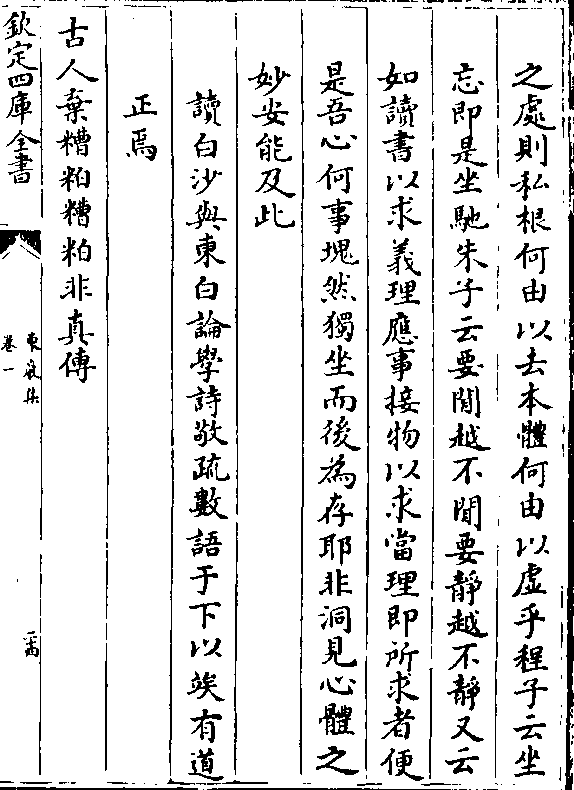 之處則私根何由以去本體何由以虛乎程子云坐
忘即是坐馳朱子云要閒越不閒要靜越不靜又云
如讀書以求義理應事接物以求當理即所求者便
是吾心何事塊然獨坐而後為存耶非洞見心體之
妙安能及此
讀白沙與東白論學詩敬疏數語于下以竢有道
正焉
古人棄糟粕糟粕非真傳
欽定四庫全書
卷一